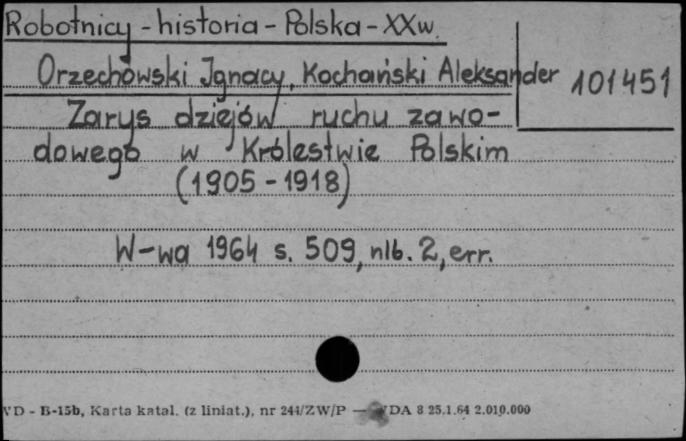 Robotnicy - historia - Polska - XXw.
Orzechowski Ignacy, Kochański Aleksander 101451
Zarys dziejów ruchu zawo-
dowego w Królestwie Polskim
(1905 - 1918)
W-wa 1964 s. 509, nlb. 2, err.
VD - B-15b, Karta katal. (z liniat.), nr 244/ZW/P — DA 8 25.1.64 2.010.000